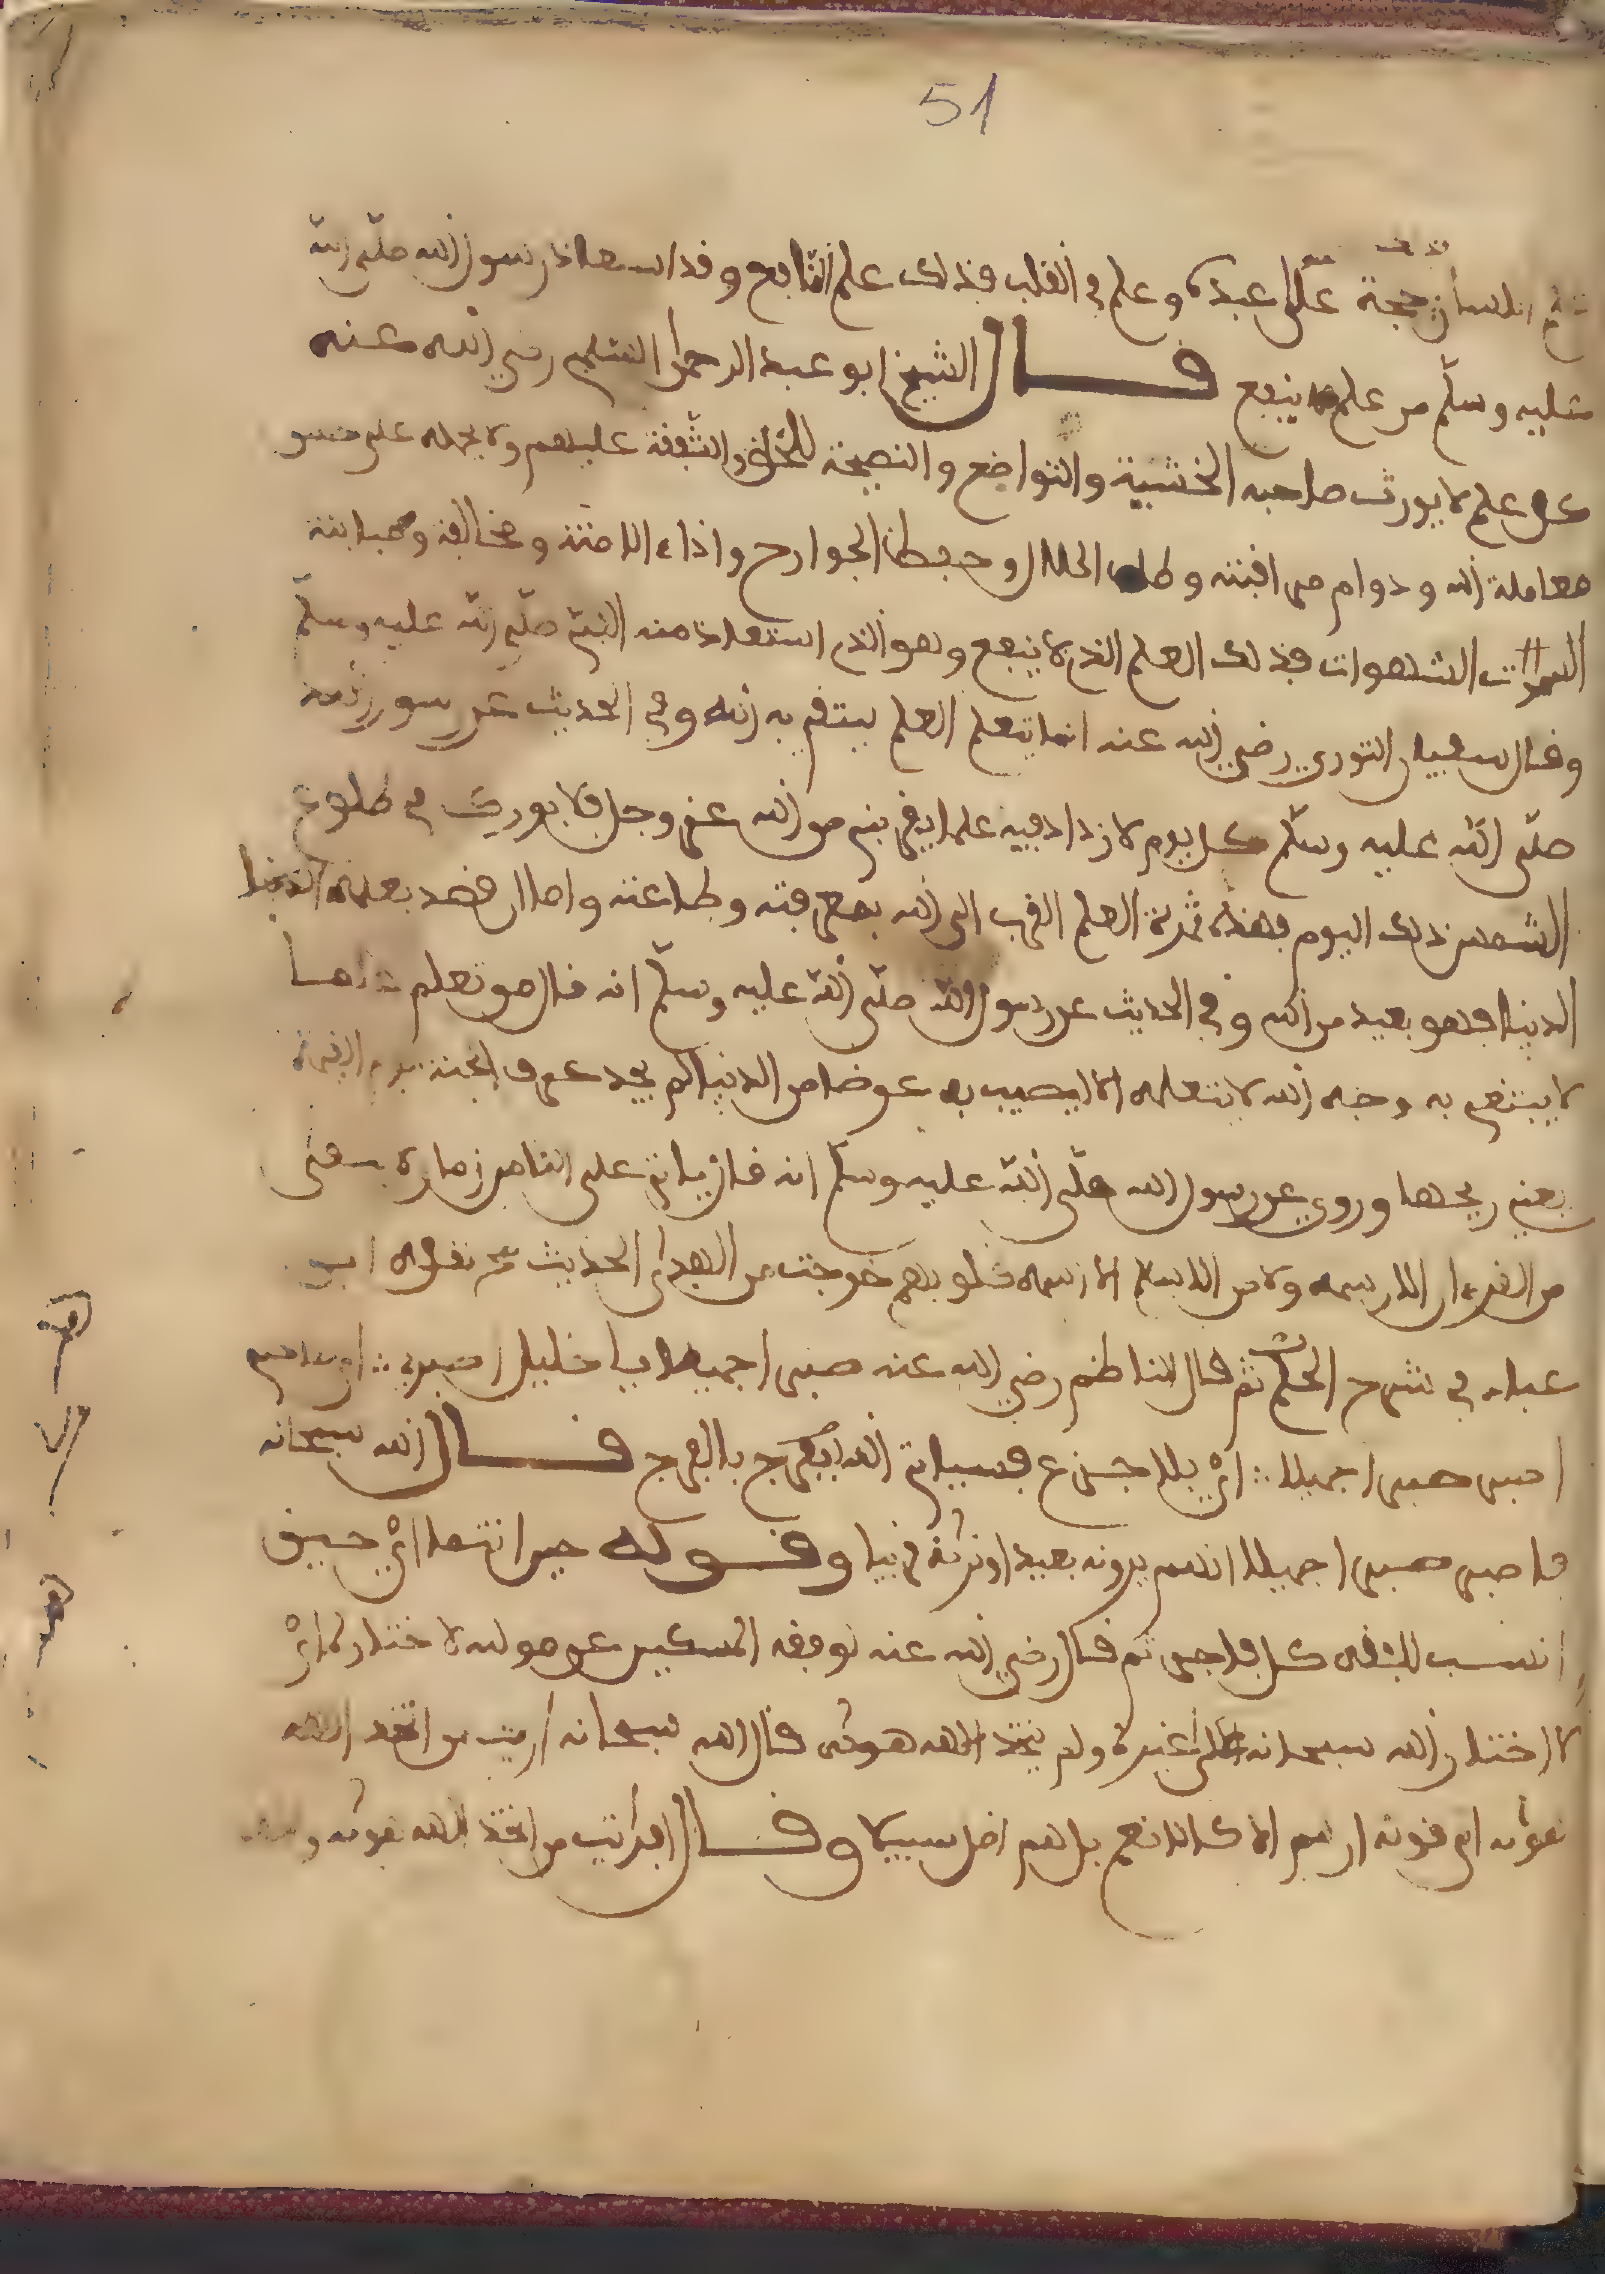 51
اللسان حجة الله على عبده وعلم في القلب فذلك علم النابع وقد استعاذ رسول الله صلى الله
عليه وسلم من علم لا ينفع قال الشيخ ابو عبد الرحمن السلمي رضي الله عنه
كل علم لا يورث صاحبه الخشية والتواضع والنصيحة للخلق والشفقة عليهم ولا يحمله على حسن
معاملة الله ودوام مراقبته وطلب الحلال وحفظ الجوارح واداء الامانة ومخالفة ومجانبة
الشهوات فذلك العلم الذي لا ينفع وهو الذي استعاذ منه النبي صلى الله عليه وسلم
وقال سفيان الثوري رضي الله عنه انما يتعلم العلم ليتقى به الله وفي الحديث عن رسول الله
صلى الله عليه وسلم كل يوم لا ازداد فيه علما يقربني من الله عز وجل فلا بورك لي في طلوع
الشمس ذلك اليوم فهذه ثمرة العلم القرب الى الله بمعرفته وطاعته واما ان قصد بعلمه
الدنيا فهو بعيد من الله وفي الحديث عن رسول الله صلى الله عليه وسلم انه قال من تعلم علما
لا يبتغى به وجه الله لا يتعلمه الا ليصيب به عوضا من الدنيا لم يجد عرف الجنة يوم القيمة
يعني ريحها وروي عن رسول الله صلى الله عليه وسلم انه قال ياتي على الناس زمان لا يبقى
من القرءان الا رسمه ولا من الاسلام الا اسمه قلوبهم خربت من الهدى الحديث نقله ابن
عباد في شرح الحكم ثم قال الناظم رضي الله عنه صبرا جميلا يا خليل اصبر ∴
اصبر صبرا جميلا ∴ اي بلا جزع فسياتي الله بالفرج قال الله سبحانه
فاصبر صبرا جميلا انهم يرونه بعيدا ونراه قريبا وقوله حين انتها اي حين
انتسب للشقى كل فاجر ثم قال رضي الله عنه توفقه المسكين عن مولاه لاختاره اي
لاختار الله سبحانه على غيره ولم يتخذ الهه هوئه قال الله سبحانه ارايت من اتخذ الهه
هوئه ان هم الا كالانعم بل هم اضل سبيلا وقال افرايت من اتخذ الهه هوئه